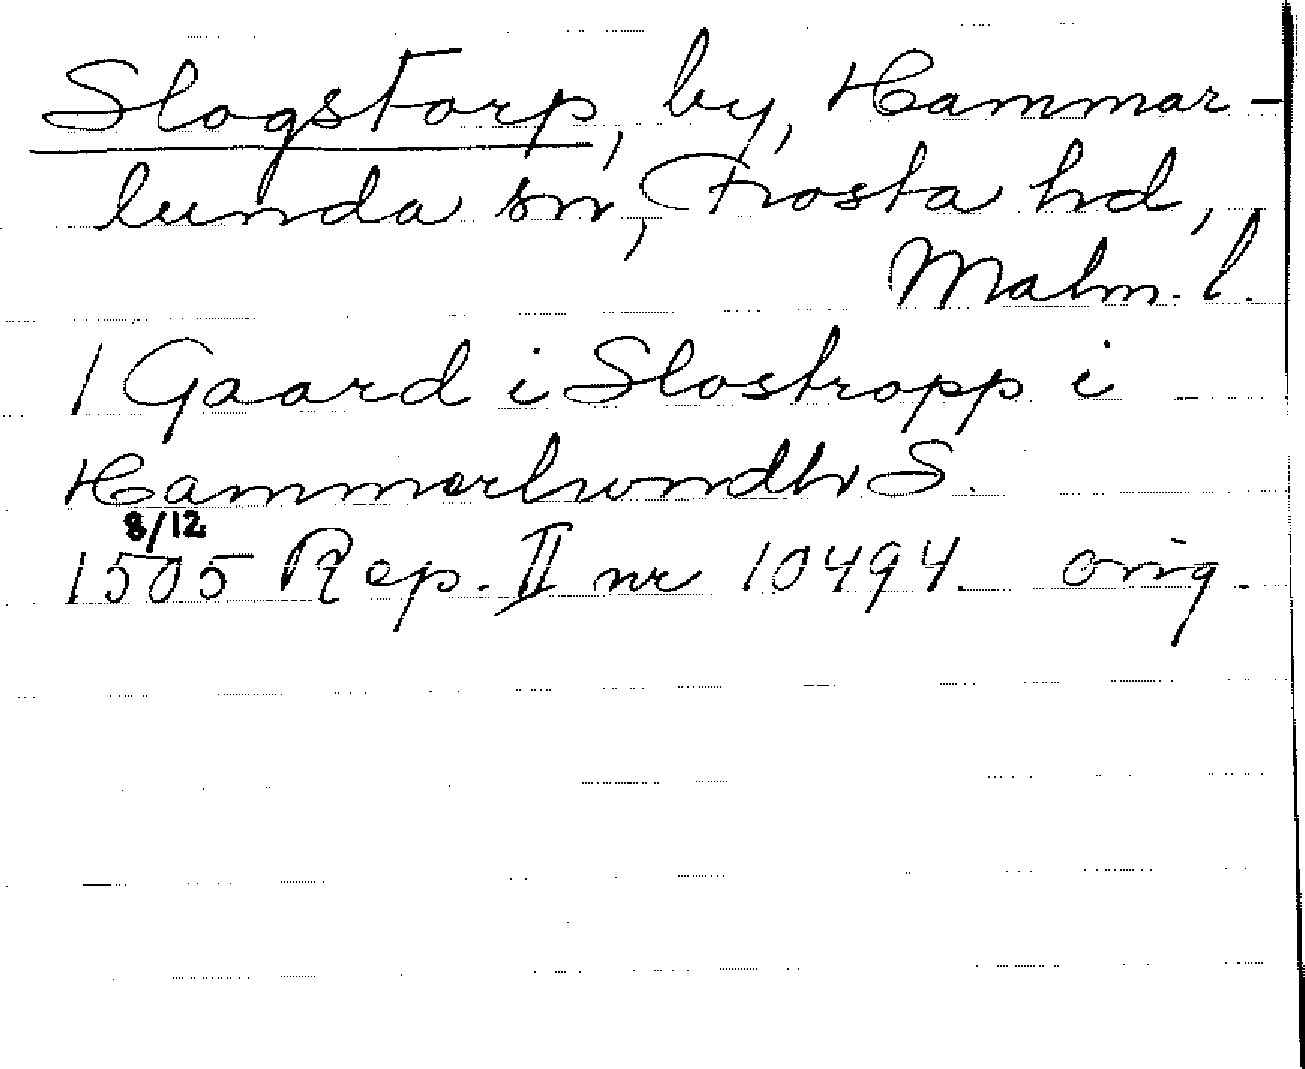 Slogstorp, by, Hammar-
lunda sn, Frosta hd,
Malm. l.
1 Gaard i Slostropp i
Hammerlwndh S.
8/12
1505 Rep. II nr 10494. orig.